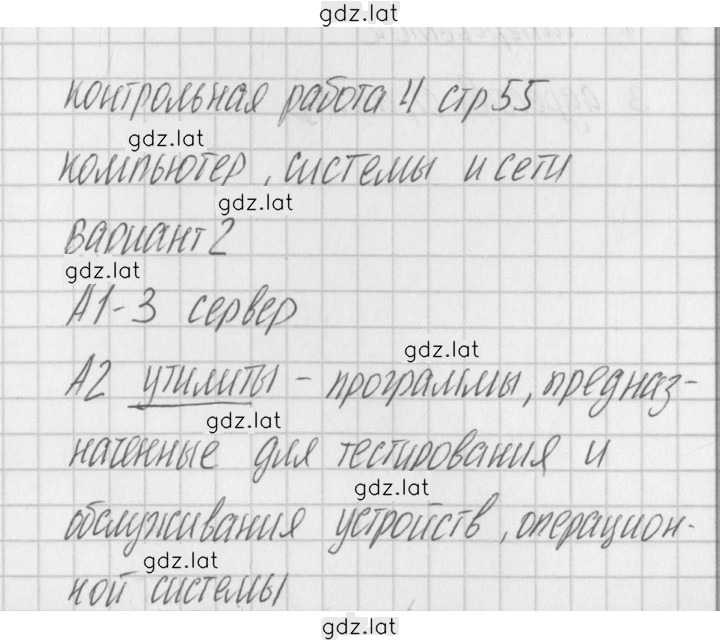 gdz.lat
контрольная работа 4 стр 55
gdz.lat
компьютер, системы и сети
gdz.lat
вариант 2
gdz.lat
А1-3 сервер
gdz.lat
А2 утилиты - программы, предназ-
gdz.lat
наченные для тестирования и
gdz.lat
обслуживания устройств, операцион-
gdz.lat
ной системы
gdz.lat